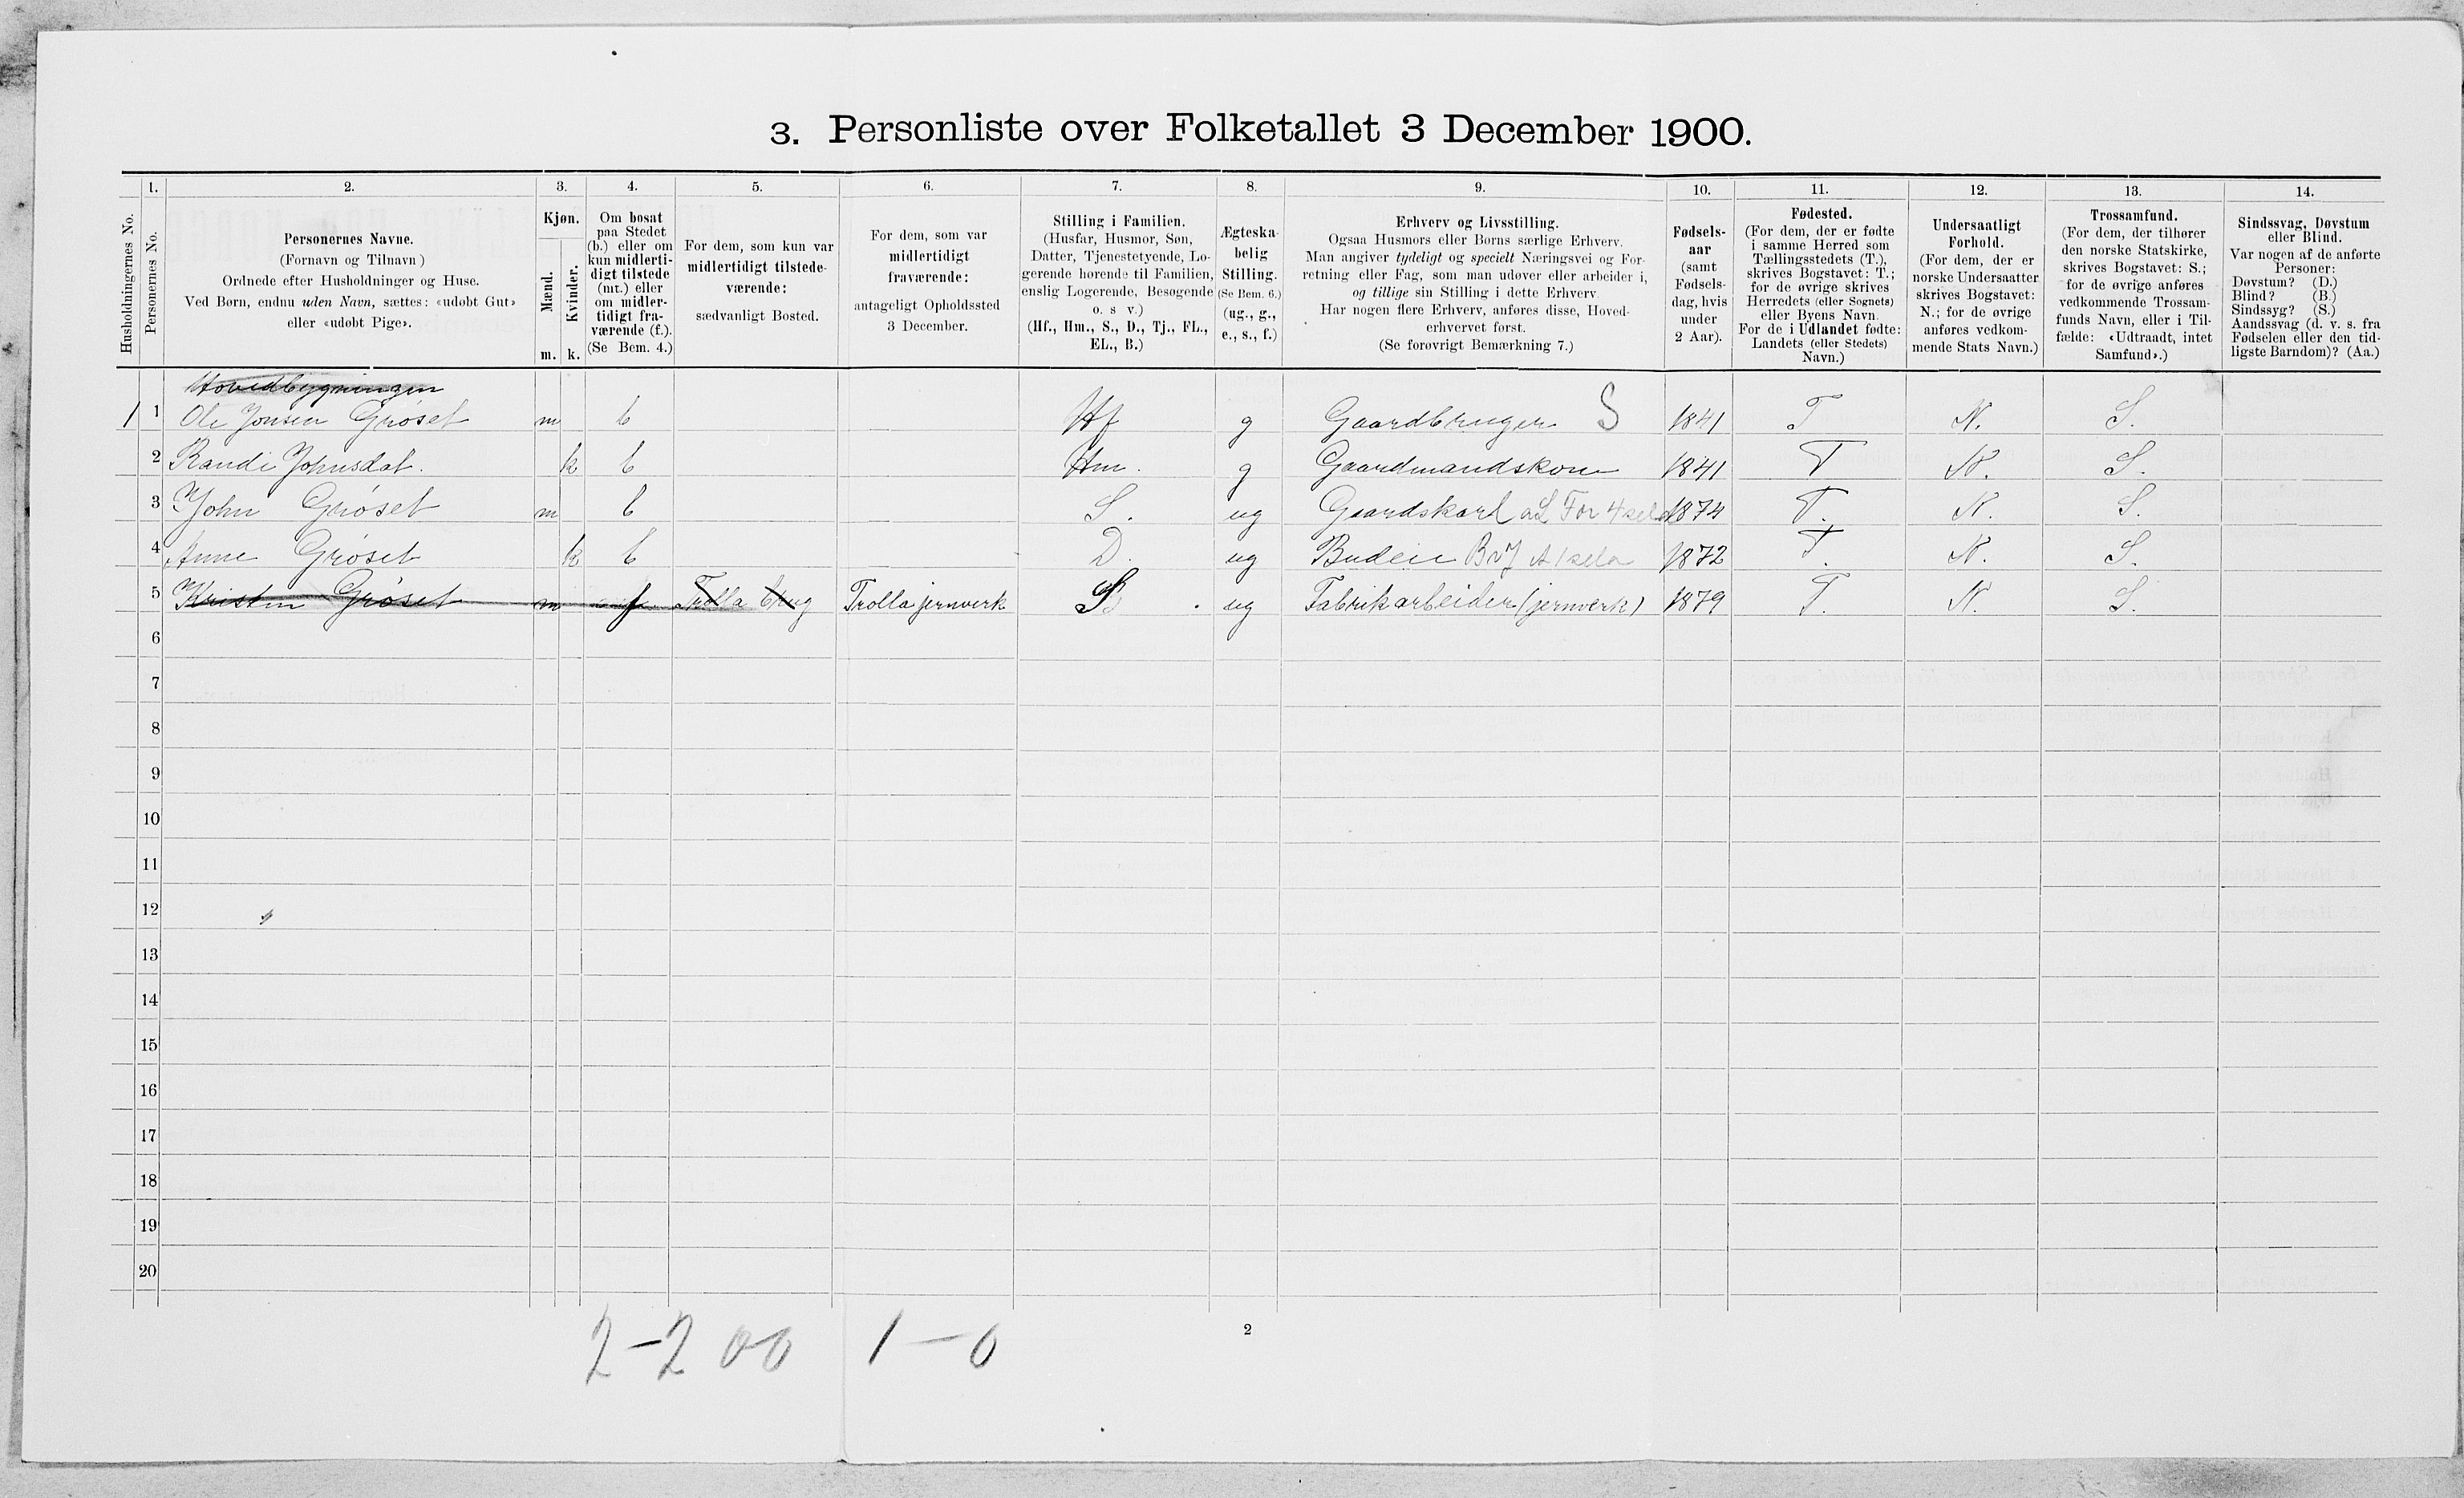 3. Personliste over Folketallet 3 December 1900.
Husholdningernes No.
1.
Personernes No.
2.
Personernes Navne.
(Fornavn og Tilnavn)
Ordnede efter Husholdninger og Huse.
Ved Børn, endnu uden Navn, sættes: «udøbt Gut»
eller «udøbt Pige».
3.
Kjøn.
Mænd.
Kvinder.
m. k.
4.
Om bosat
paa Stedet
(b.) eller om
kun midlerti-
digt tilstede
(mt.) eller
om midler-
tidigt fra-
værende (f.).
(Se Bem. 4.)
5.
For dem, som kun var
midlertidigt tilstede-
værende:
sædvanligt Bosted.
6.
For dem, som var
midlertidigt
fraværende:
antageligt Opholdssted
3 December.
7.
Stilling i Familien.
(Husfar, Husmor, Søn,
Datter, Tjenestetyende, Lo-
gerende hørende til Familien,
enslig Logerende, Besøgende
o. s v.)
(Hf., Hm., S., D., Tj., FL.,
EL., B.)
8.
Ægteska-
belig
Stilling.
(Se Bem. 6.)
(ug., g.,
e., s., f.)
9.
Erhverv og Livsstilling.
Ogsaa Husmors eller Børns særlige Erhverv.
Man angiver tydeligt og specielt Næringsvei og For-
retning eller Fag, som man udøver eller arbeider i,
og tillige sin Stilling i dette Erhverv.
Har nogen flere Erhverv, anføres disse, Hoved-
erhvervet først.
(Se forøvrigt Bemærkning 7.)
10.
Fødsels-
aar
(samt
Fødsels-
dag, hvis
under
2 Aar).
11.
Fødested.
(For dem, der er fødte
i samme Herred som
Tællingsstedets (T.),
skrives Bogstavet: T.;
for de øvrige skrives
Herredets (eller Sognets)
eller Byens Navn.
For de i Udlandet fødte:
Landets (eller Stedets)
Navn.)
12.
Undersaatligt
Forhold.
(For dem, der er
norske Undersaatter
skrives Bogstavet:
N.; for de øvrige
anføres vedkom-
mende Stats Navn.)
13.
Trossamfund.
(For dem, der tilhører
den norske Statskirke,
skrives Bogstavet: S.;
for de øvrige anføres
vedkommende Trossam-
funds Navn, eller i Til-
fælde: «Udtraadt, intet
Samfund».)
14.
Sindssvag, Døvstum
eller Blind.
Var nogen af de anførte
Personer:
Døvstum? (D.)
Blind? (B.)
Sindssyg? (S.)
Aandssvag (d. v. s. fra
Fødselen eller den tid-
ligste Barndom)? (Aa.)
Hovedbygningen
1 1 Ole Jonsen Grøset m b Hf g Gaardbruger S 1841 T N. S.
2 Randi Johnsdat. k b Hm. g Gaardmandskone 1841 T N. S.
3 John Grøset m b S. ug Gaardskarl For 1874 T. N. S.
4 Anne Grøset k b D. ug Budeie 1872 T. N. S.
5 Kristen Grøset m f Trolla brug Trolla jernverk S ug Fabrikarbeider (jernverk) 1879 T. N. S.
6
7
8
9
10
11
12
13
14
15
16
17
18
19
20
2-2 00 1-0
2